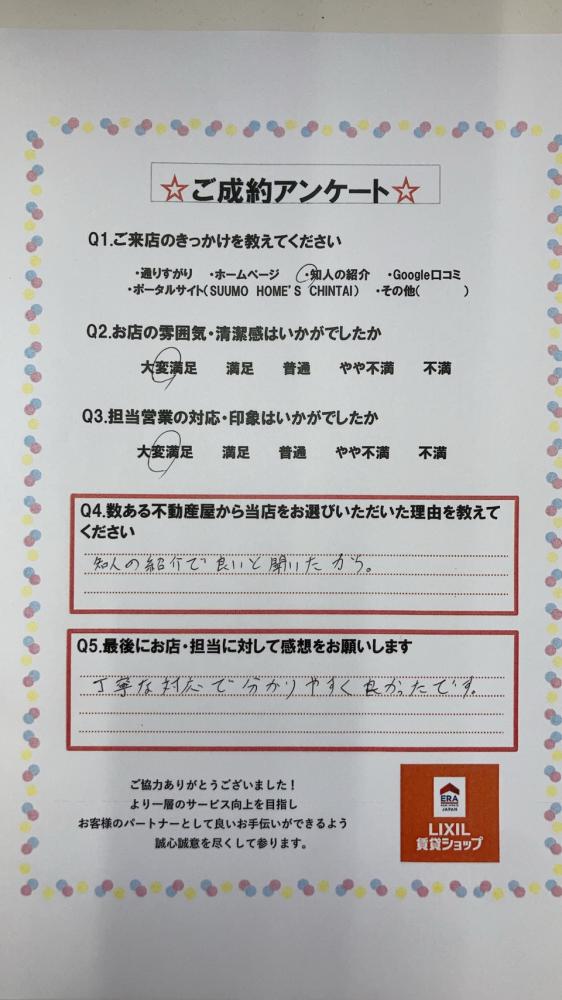 ☆ご成約アンケート☆
Q1.ご来店のきっかけを教えてください
・通りすがり ・ホームページ ・知人の紹介 ・Google口コミ
・ポータルサイト(SUUMO HOME'S CHINTAI) ・その他( )
Q2.お店の雰囲気・清潔感はいかがでしたか
大変満足 満足 普通 やや不満 不満
Q3.担当営業の対応・印象はいかがでしたか
大変満足 満足 普通 やや不満 不満
Q4.数ある不動産屋から当店をお選びいただいた理由を教えて
ください
知人の紹介で良いと聞いたから。
Q5.最後にお店・担当に対して感想をお願いします
丁寧な対応で分かりやすく良かったです。
ご協力ありがとうございました！
より一層のサービス向上を目指し
お客様のパートナーとして良いお手伝いができるよう
誠心誠意を尽くして参ります。
ERA
JAPAN
LIXIL
賃貸ショップ